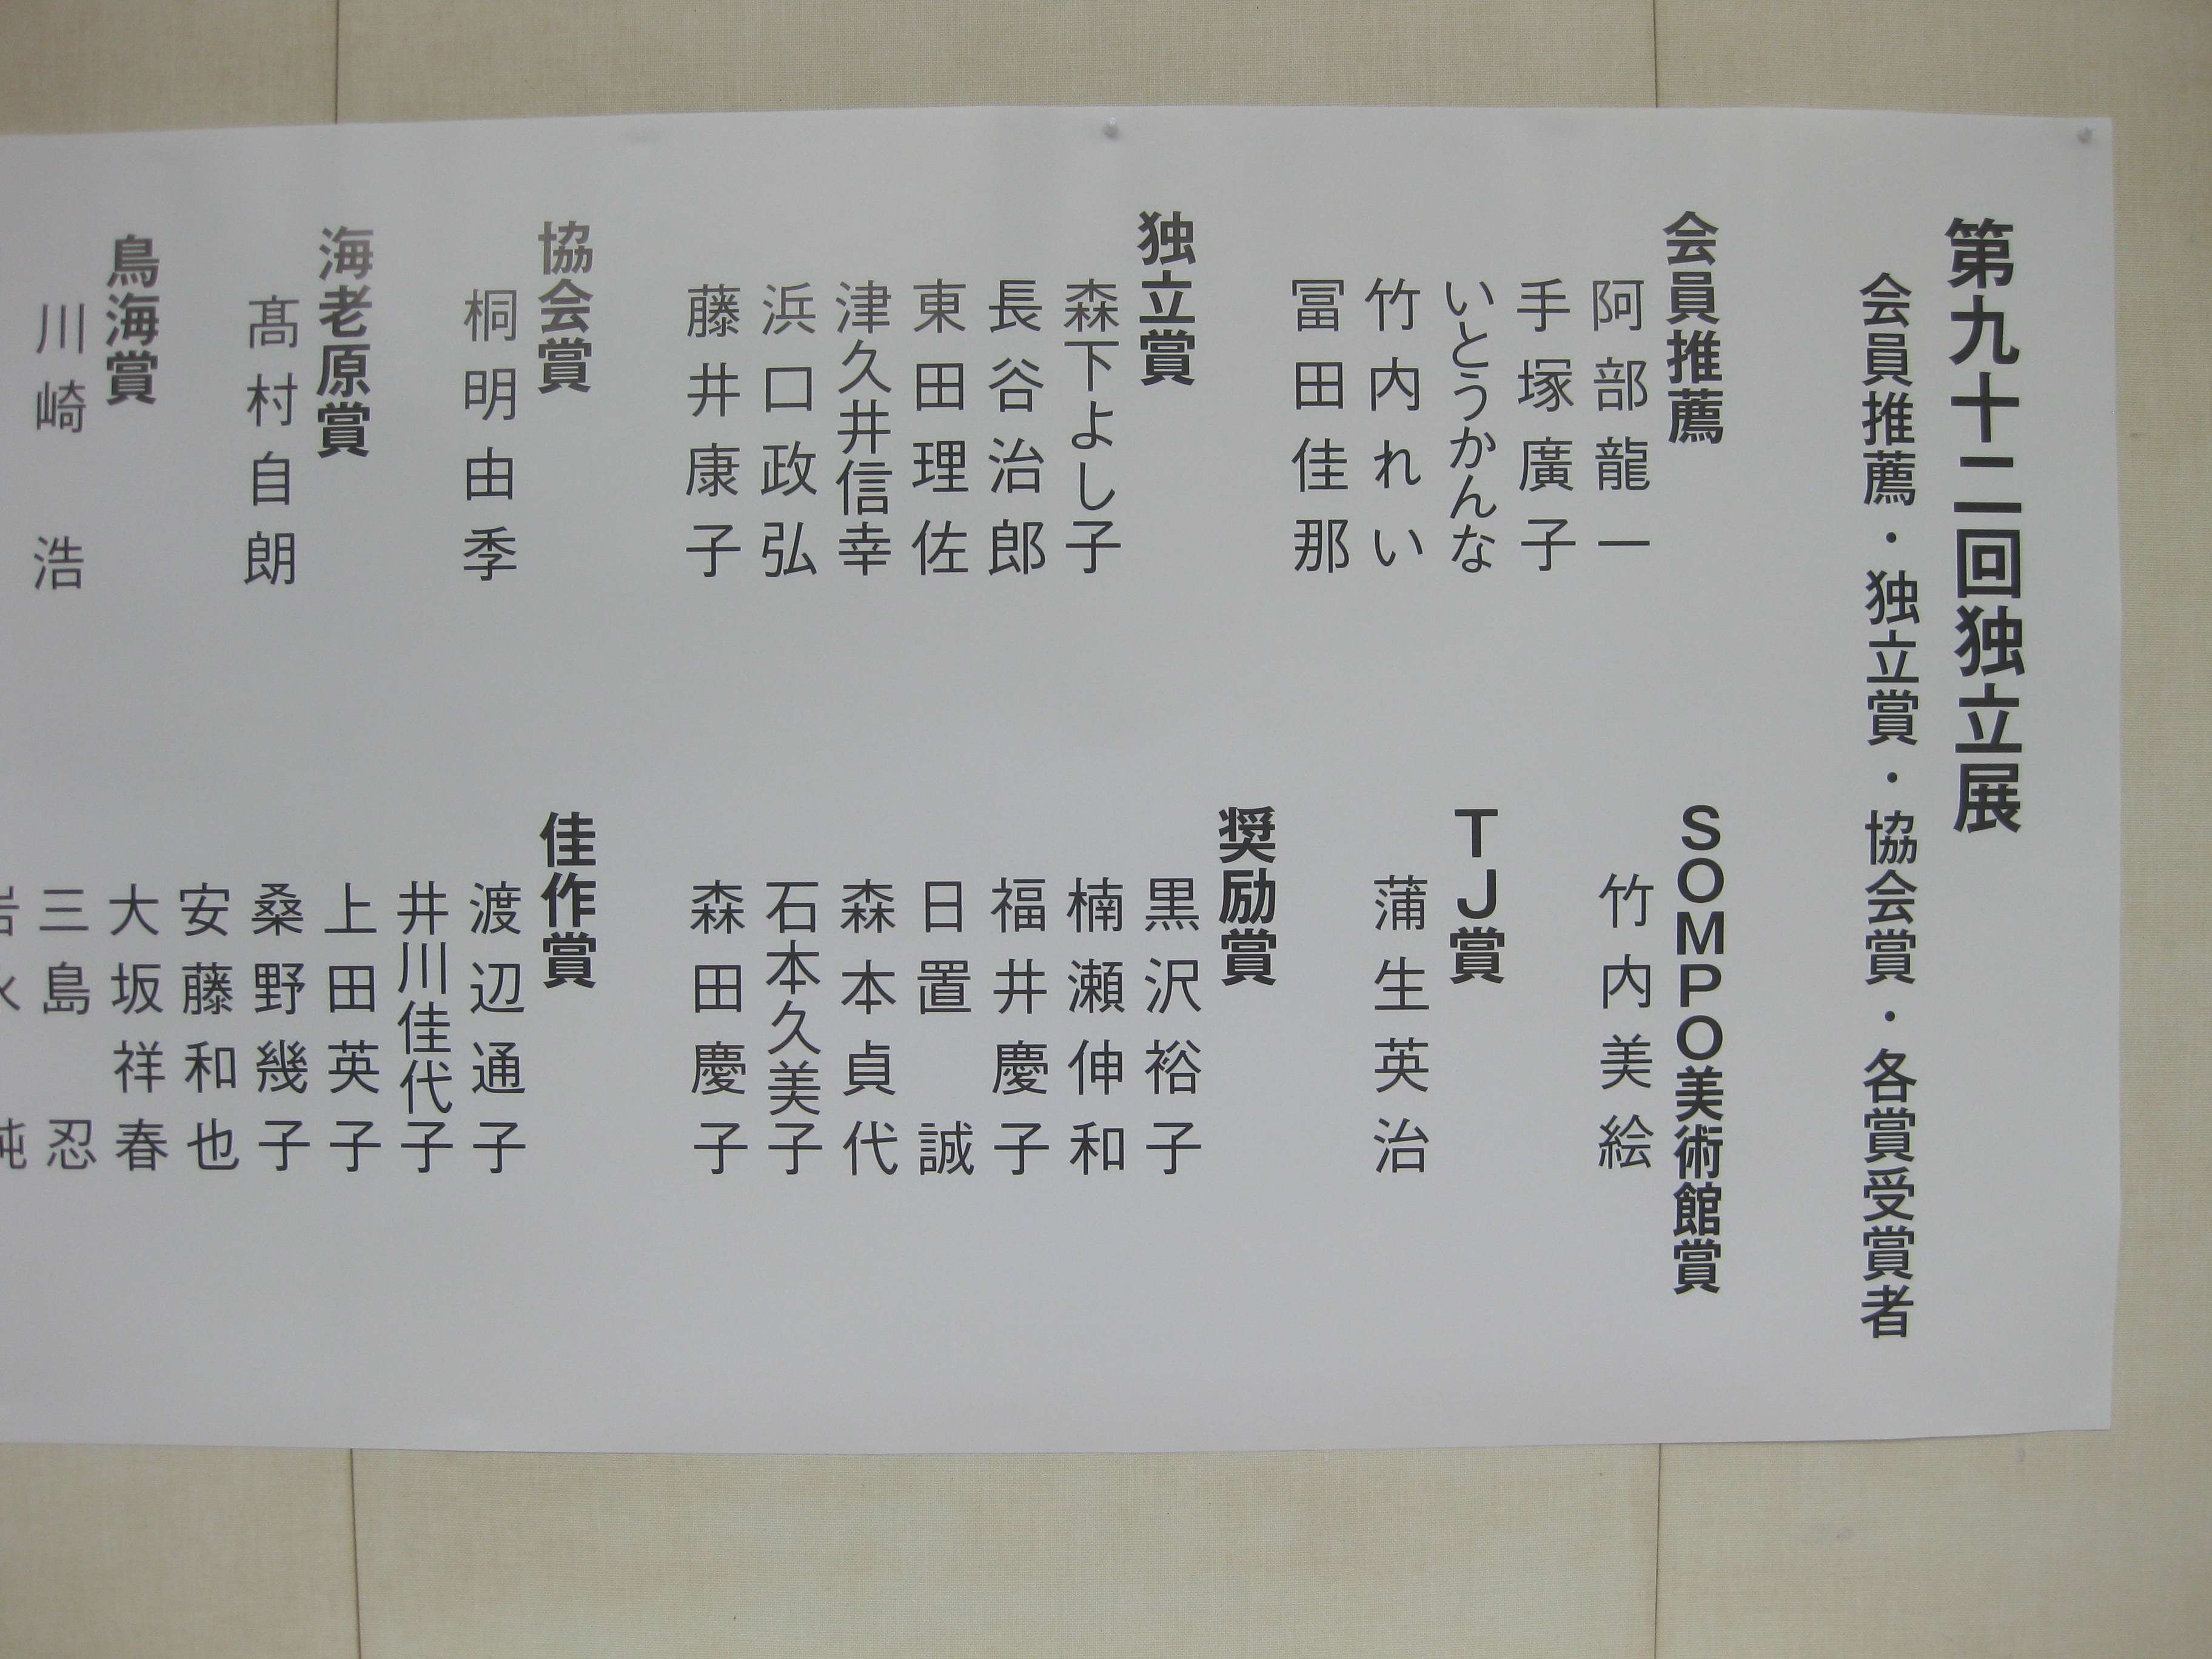 第九十二回独立展
会員推薦・独立賞・協会賞・各賞受賞者
会員推薦
阿部龍一
手塚廣子
いとうかんな
竹内れい
冨田佳那
独立賞
森下よし子
長谷治郎
東田理佐
津久井信幸
浜口政弘
藤井康子
協会賞
桐明由季
海老原賞
髙村自朗
鳥海賞
川崎浩
SOMPO美術館賞
竹内美絵
TJ賞
蒲生英治
奨励賞
黒沢裕子
楠瀬伸和
福井慶子
日置誠
森本貞代
石本久美子
森田慶子
佳作賞
渡辺通子
井川佳代子
上田英子
桑野幾子
安藤和也
大坂祥春
三島忍